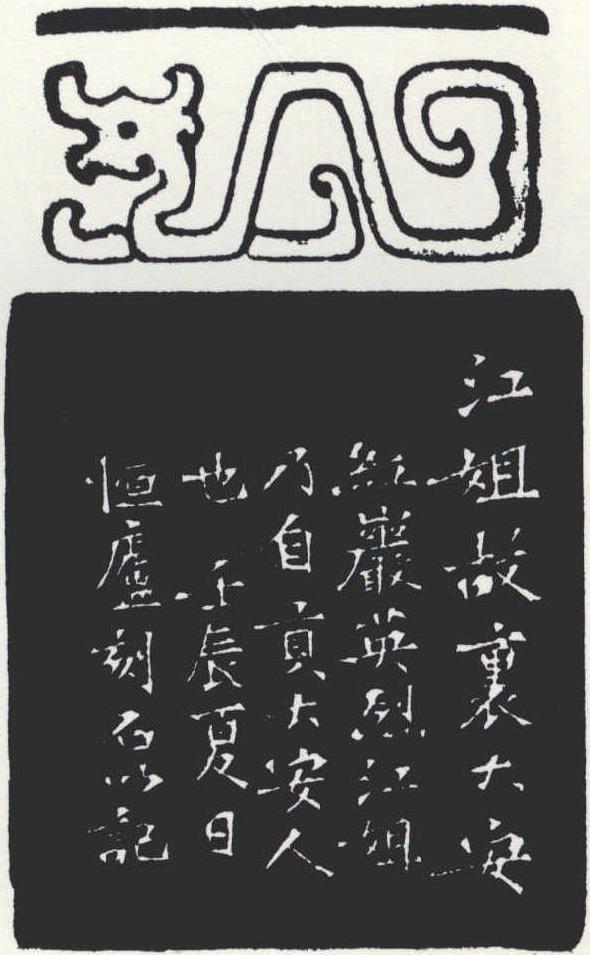 江姐故裏大安
紅巖英烈江姐
乃自貢大安人
也 壬辰夏日
恒廬刻石以記